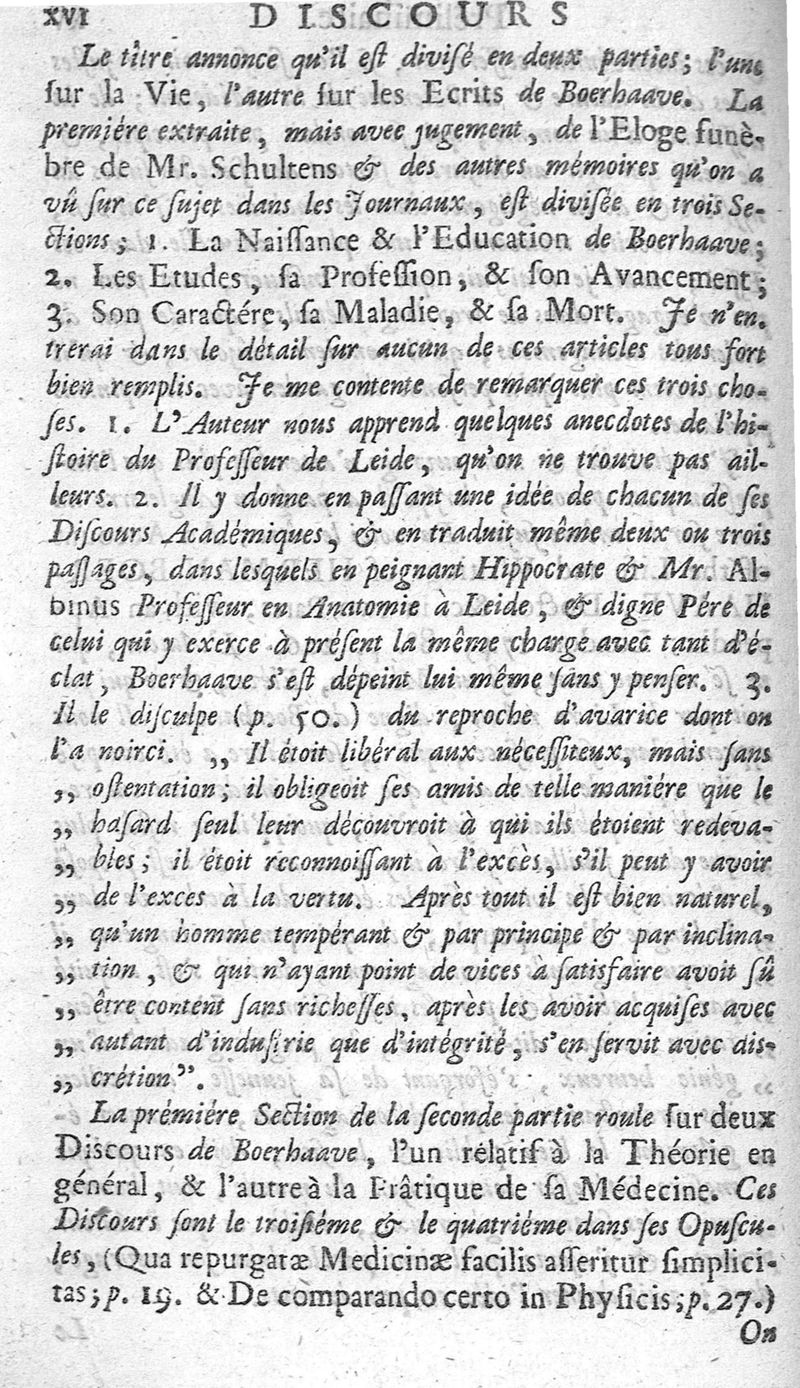 XVI DISCOURS
Le tître annonce qu'il eſt diviſé en deux parties; l'une
ſur la Vie, l'autre ſur les Ecrits de Boerhaave. La
premiére extraite, mais avec jugement, de l'Eloge funè-
bre de Mr. Schultens & des autres mémoires qu'on a
vû ſur ce ſujet dans les Journaux, eſt diviſée en trois Se-
ctions; 1. La Naiſſance & l'Education de Boerhaave;
2. Les Etudes, ſa Profeſſion, & ſon Avancement;
3. Son Caractére, ſa Maladie, & ſa Mort. Je n'en-
trerai dans le détail ſur aucun de ces articles tous fort
bien remplis. Je me contente de remarquer ces trois cho-
ſes. 1. L'Auteur nous apprend quelques anecdotes de l'hi-
ſtoire du Profeſſeur de Leide, qu'on ne trouve pas ail-
leurs. 2. Il y donne en paſſant une idée de chacun de ſes
Diſcours Académiques, & en traduit même deux ou trois
paſſages, dans lesquels en peignant Hippocrate & Mr. Al-
binus Profeſſeur en Anatomie à Leide, & digne Pére de
celui qui y exerce à préſent la même charge avec tant d'é-
clat, Boerhaave s'eſt dépeint lui même ſans y penſer. 3.
Il le diſculpe (p. 50.) du reproche d'avarice dont on
l'a noirci. „ Il étoit libéral aux néceſſiteux, mais ſans
„ oſtentation; il obligeoit ſes amis de telle maniére que le
„ haſard ſeul leur découvroit à qui ils étoient redeva-
„ bles; il étoit reconnoiſſant à l'excès, s'il peut y avoir
„ de l'exces à la vertu. Après tout il eſt bien naturel,
„ qu'un homme tempérant & par principe & par inclina-
„ tion, & qui n'ayant point de vices à ſatisfaire avoit ſû
„ être content ſans richeſſes, après les avoir acquiſes avec
„ autant d'induſtrie que d'intégrité, s'en ſervit avec dis-
„ crétion".
La prémiére Section de la ſeconde partie roule ſur deux
Discours de Boerhaave, l'un rélatif à la Théorie en
général, & l'autre à la Prâtique de ſa Médecine. Ces
Discours ſont le troiſiéme & le quatriéme dans ſes Opuſcu-
les, (Qua repurgatæ Medicinæ facilis aſſeritur ſimplici-
tas; p. 19. & De comparando certo in Phyſicis; p. 27.)
On